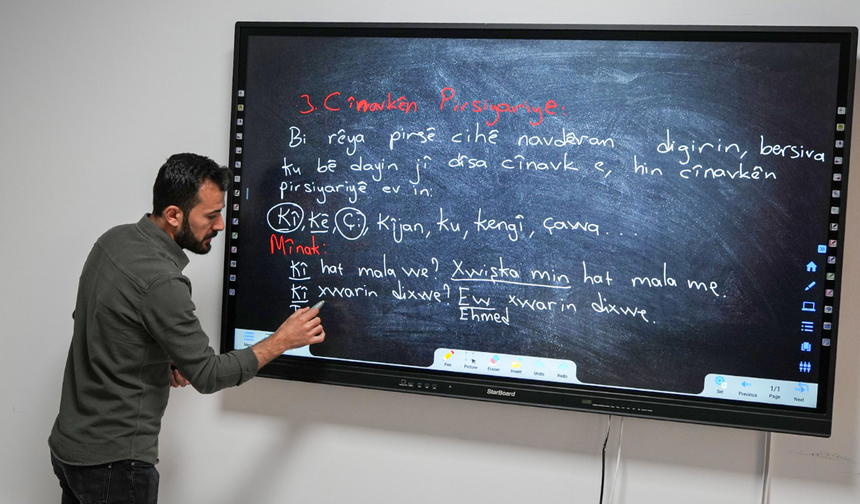 3. Cînavkên Pirsiyariyê:
Bi rêya pirsê cihê navdêran digirin, bersiva
ku bê dayin jî dîsa cînavk e, hin cînavkên
pirsiyariyê ev in:
Kî, Kê, Çi, Kîjan, ku, kengî, çawa...
Mînak:
Kî hat mala we? Xwişka min hat mala me.
Kî xwarin dixwe? Ew xwarin dixwe.
Ehmed
Pen Picture Eraser Insert Undo Redo
Set Previous 1/1 Page Next
StarBoard